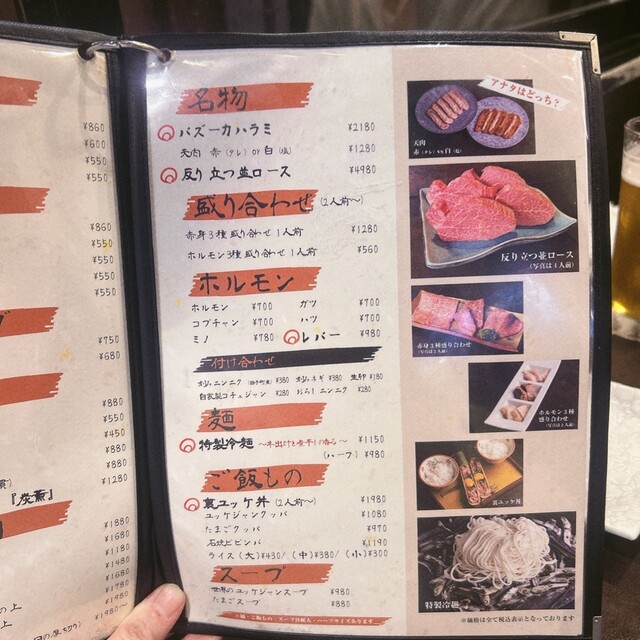 ¥860
¥600
¥550
¥550
¥860
¥550
¥550
¥550
¥550
¥750
¥680
¥880
¥550
¥450
¥880
¥880
¥1280
『炭薫』
¥1880
¥1680
¥1180
¥1480
¥1680
¥1780
¥1980
¥980〜
の上
上
名物
バズーカハラミ ¥2180
天肉 赤(タレ) or 白(塩) ¥1280
反り立つ並ロース ¥4980
盛り合わせ (2人前〜)
赤身3種盛り合わせ 1人前 ¥1280
ホルモン3種盛り合わせ 1人前 ¥560
ホルモン
ホルモン ¥700 ガツ ¥700
コプチャン ¥700 ハツ ¥700
ミノ ¥780 レバー ¥980
付け合わせ
¥380 オクラネギ ¥380 生卵 ¥180
自家製コチュジャン ¥280 おろしニンニク ¥280
麺
特製冷麺 ¥1150
(ハーフ) ¥980
ご飯もの
裏ユッケ丼 (2人前〜) ¥1980
ユッケジャンクッパ ¥1080
たまごクッパ ¥970
石焼ビビンバ ¥1190
ライス (大)¥430/ (中)¥380/ (小)¥300
スープ
世界のユッケジャンスープ ¥980
たまごスープ ¥880
アナタはどっち?
天肉
赤(タレ) or 白(塩)
反り立つ並ロース
(写真は1人前)
赤身3種盛り合わせ
(写真は2人前)
ホルモン3種
盛り合わせ
(写真は2人前)
裏ユッケ丼
特製冷麺
※価格は全て税込表示となっております